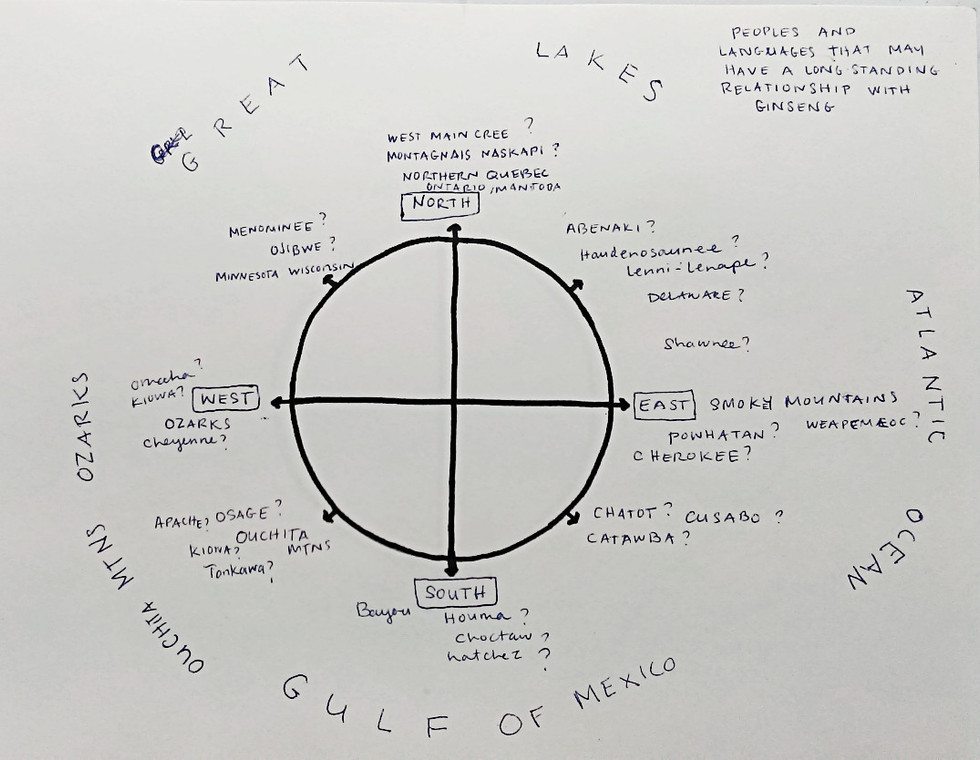 GREAT LAKES
PEOPLES AND
LANGUAGES THAT MAY
HAVE A LONG-STANDING
RELATIONSHIP WITH
GINSENG
WEST MAIN CREE ?
MONTAGNAIS NASKAPI ?
NORTHERN QUEBEC
ONTARIO, MANTODA
NORTH
MENOMINEE ?
OJIBWE ?
MINNESOTA WISCONSIN
ABENAKI ?
Haudenosaunee ?
Lenni-Lenape ?
DELAWARE ?
Shawnee?
ATLANTIC
OCEAN
OZARKS
Omaha?
KIOWA?
WEST
OZARKS
Cheyenne?
EAST SMOKY MOUNTAINS
POWHATAN? WEAPEMEOC ?
CHEROKEE?
APACHE? OSAGE ?
OUCHITA
KIOWA? MTNS
Tonkawa?
CHATOT ? CUSABO ?
CATAWBA ?
OUCHITA MTNS
SOUTH
Bayou Houma ?
Choctaw ?
natchez ?
GULF OF MEXICO